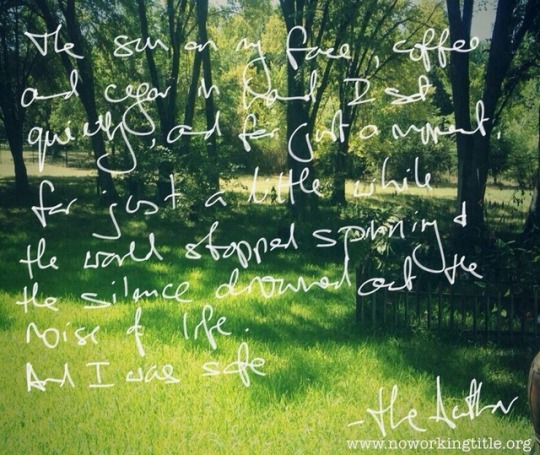 The sun on my face, coffee
and cigar in hand I sat
quietly, and for just a moment,
for just a little while
the world stopped spinning &
the silence drowned out the
noise of life.
And I was safe
- the Author
www.noworkingtitle.org